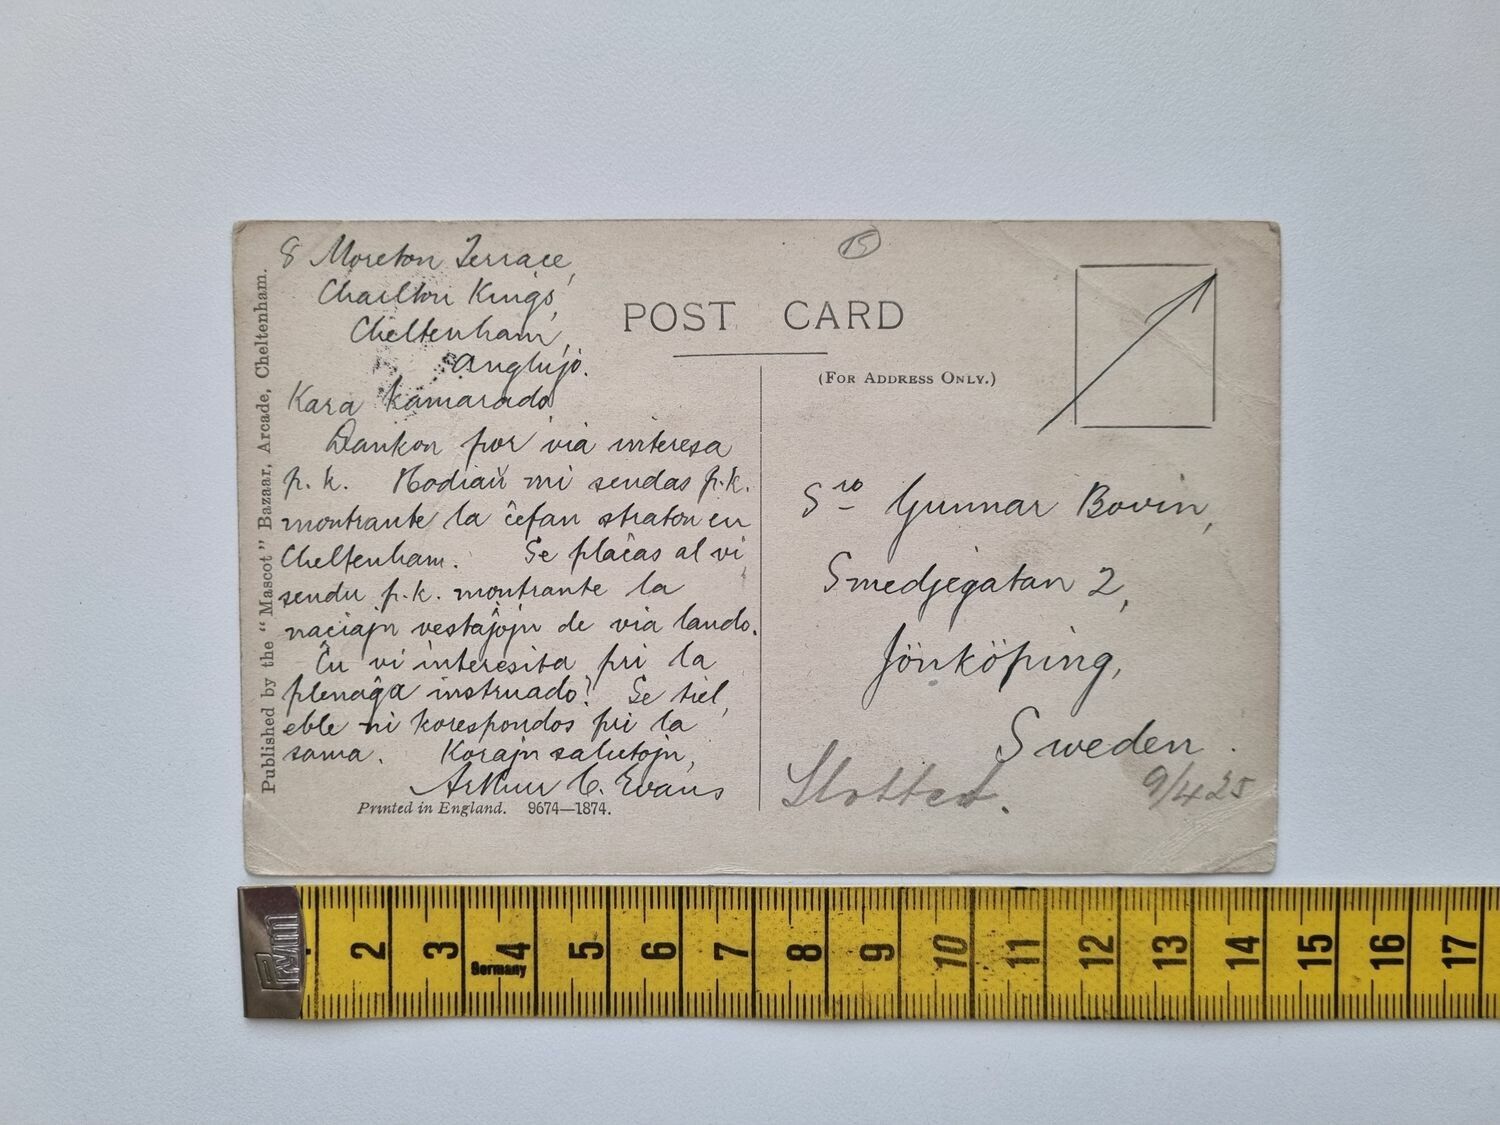 8 Moreton Terrace,
Charlton Kings,
Cheltenham,
Anglujo.
Kara kamarado
Dankon por via interesa
p.k. Hodiaŭ mi sendas p.k.
montrante la ĉefan straton en
Cheltenham. Se plaĉas al vi,
sendu p.k. montrante la
naciajn vestaĵojn de via lando.
Ĉu vi interesita pri la
plenaĝa instruado? Se tiel,
eble ni korespondos pri la
sama. Korajn salutojn,
Arthur C. Evans
Printed in England. 9674—1874.
Published by the "Mascot" Bazaar, Arcade, Cheltenham.
15
POST CARD
(FOR ADDRESS ONLY.)
Sro Gunnar Bovin,
Smedjegatan 2,
Jönköping,
Sweden.
9/4 25
2 3 4 5 6 7 8 9 10 11 12 13 14 15 16 17
Germany